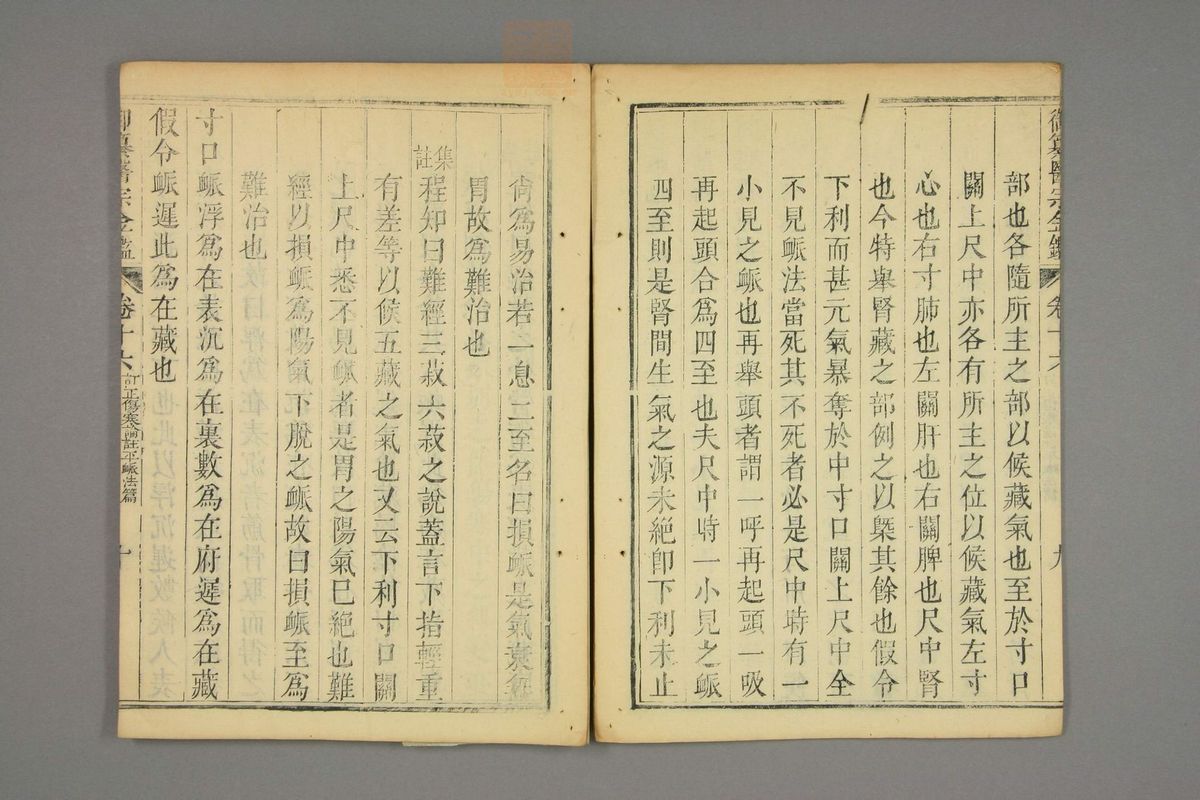 御纂醫宗金鑑 卷十六 九
部也各隨所主之部以候藏氣也至於寸口
關上尺中亦各有所主之位以候藏氣左寸
心也右寸肺也左關肝也右關脾也尺中腎
也今特舉腎藏之部例之以槩其餘也假令
下利而甚元氣暴奪於中寸口關上尺中全
不見脈法當死其不死者必是尺中時有一
小見之脈也再舉頭者謂一呼再起頭一吸
再起頭合爲四至也夫尺中時一小見之脈
四至則是腎間生氣之源未絕卽下利未止
尙爲易治若一息二至名曰損脈是氣衰無
胃故爲難治也
集註
程知曰難經三菽六菽之說蓋言下指輕重
有差等以候五藏之氣也又云下利寸口關
上尺中悉不見脈者是胃之陽氣已絕也難
經以損脈爲陽氣下脫之脈故曰損脈至爲
難治也
寸口脈浮爲在表沉爲在裏數爲在府遲爲在藏
假令脈遲此爲在藏也
御纂醫宗金鑑 卷十六 訂正傷寒論註平脈法篇 十